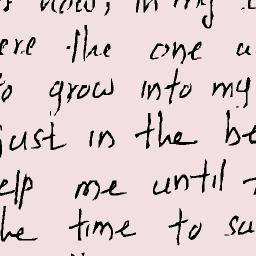 now, in my
ere the one a
to grow into my
just in the be
elp me until t
he time to su